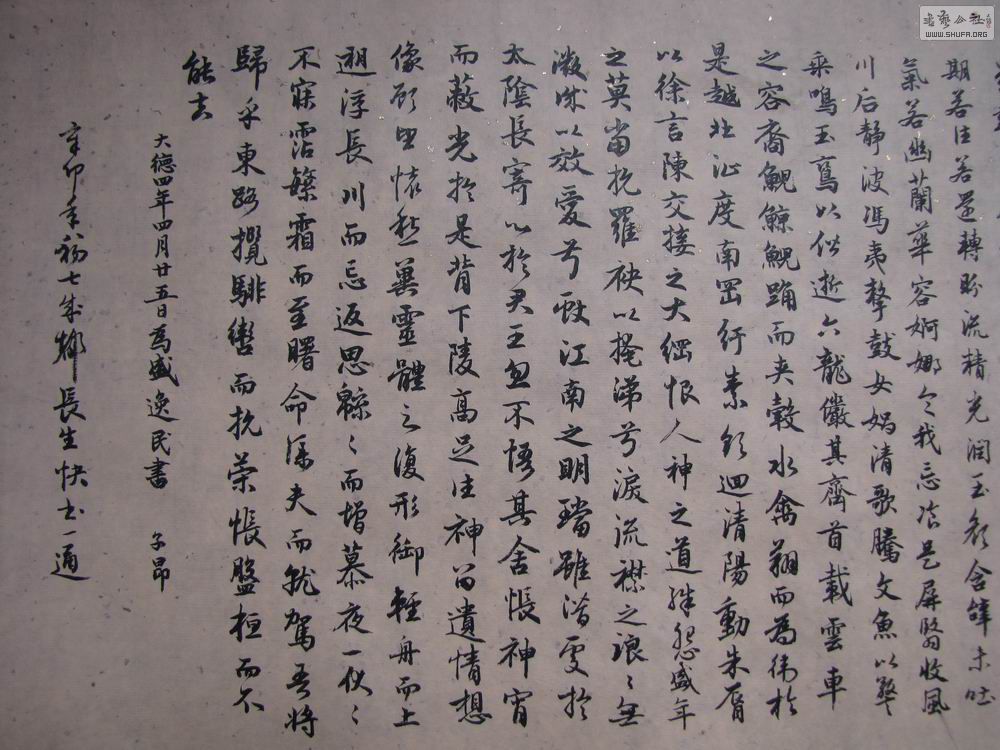 期若往若還轉眄流精光潤玉顏含辭未吐
氣若幽蘭華容婀娜令我忘飡於是屏翳收風
川后靜波馮夷擊鼓女媧清歌騰文魚以警
乘鳴玉鸞以偕逝六龍儼其齊首載雲車
之容裔鯢鯨鯢踊而夾轂水禽翔而為衛於
是越北沚度南岡紆素領迴清陽動朱脣
以徐言陳交接之大綱恨人神之道殊怨盛年
之莫當抗羅袂以掩涕兮淚流襟之琅〻無
微情以效愛兮獻江南之明璫雖潛處於
太陰長寄心於君王忽不悟其舍悵神宵
而蔽光於是背下陵高足往神留遺情想
像顧望懷愁冀靈體之復形御輕舟而上
遡浮長川而忘返思緜〻而增慕夜耿〻
不寐霑繁霜而至曙命僕夫而就駕吾將
歸乎東路攬騑轡而抗策悵盤桓而不
能去
大德四年四月廿五日為盛逸民書 子昂
辛卯年 七 長生 士一通
書藝公社
WWW.SHUFA.ORG